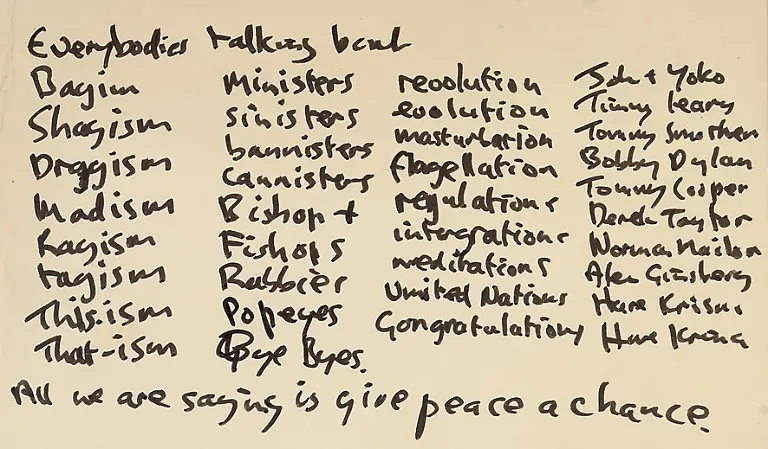 Everybodies talking bout
Bagism
Shagism
Draggism
Madism
Ragism
tagism
This.ism
That-ism
Ministers
sinisters
bannisters
cannisters
Bishop +
Fishops
Rabbies
Popeyes
Bye Byes.
revolution
evolution
masturbation
flagellation
regulations
intergrations
meditations
United Nations
Congratulations
John + Yoko
Timmy Leary
Tommy Smothers
Bobby Dylan
Tommy Cooper
Derek Taylor
Norman Mailer
Alen Ginsberg
Hare Krisna
Hare Krisna
All we are saying is give peace a chance.